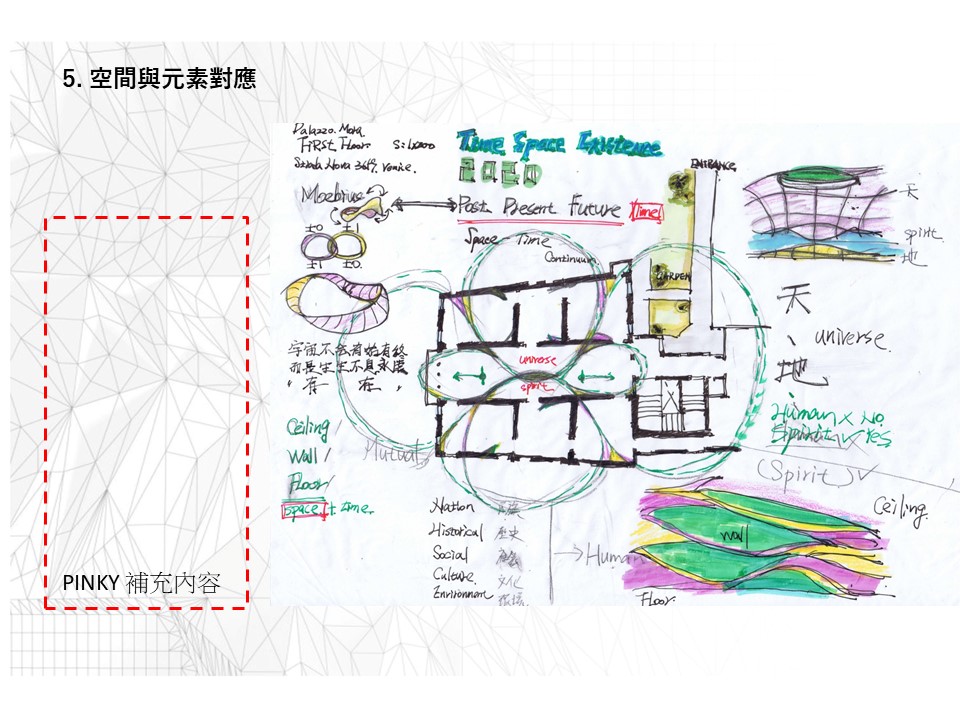 5. 空間與元素對應
PINKY 補充內容
Palazzo. Mora.
FiRST Floor. S:1/200
Strada Nova 3659, Venice.
Time Space Existence
2020
ENTRANCE
Moebius
Past Present Future Time
±0 ±1
±1 ±0
Space Time
Continuum
GARDEN
天
spirit.
地
天
、
地
universe.
universe
spirit
宇宙不会有始有終
而是生生不息永遠
“存在”
Ceiling /
Wall /
Floor /
Space + time.
Mutual
Human X No.
Spirit V Yes
(Spirit) V
Nation
Historical 歷史
Social 社會
Culture. 文化
Environment 環境
→ Human
Ceiling.
wall
Floor.